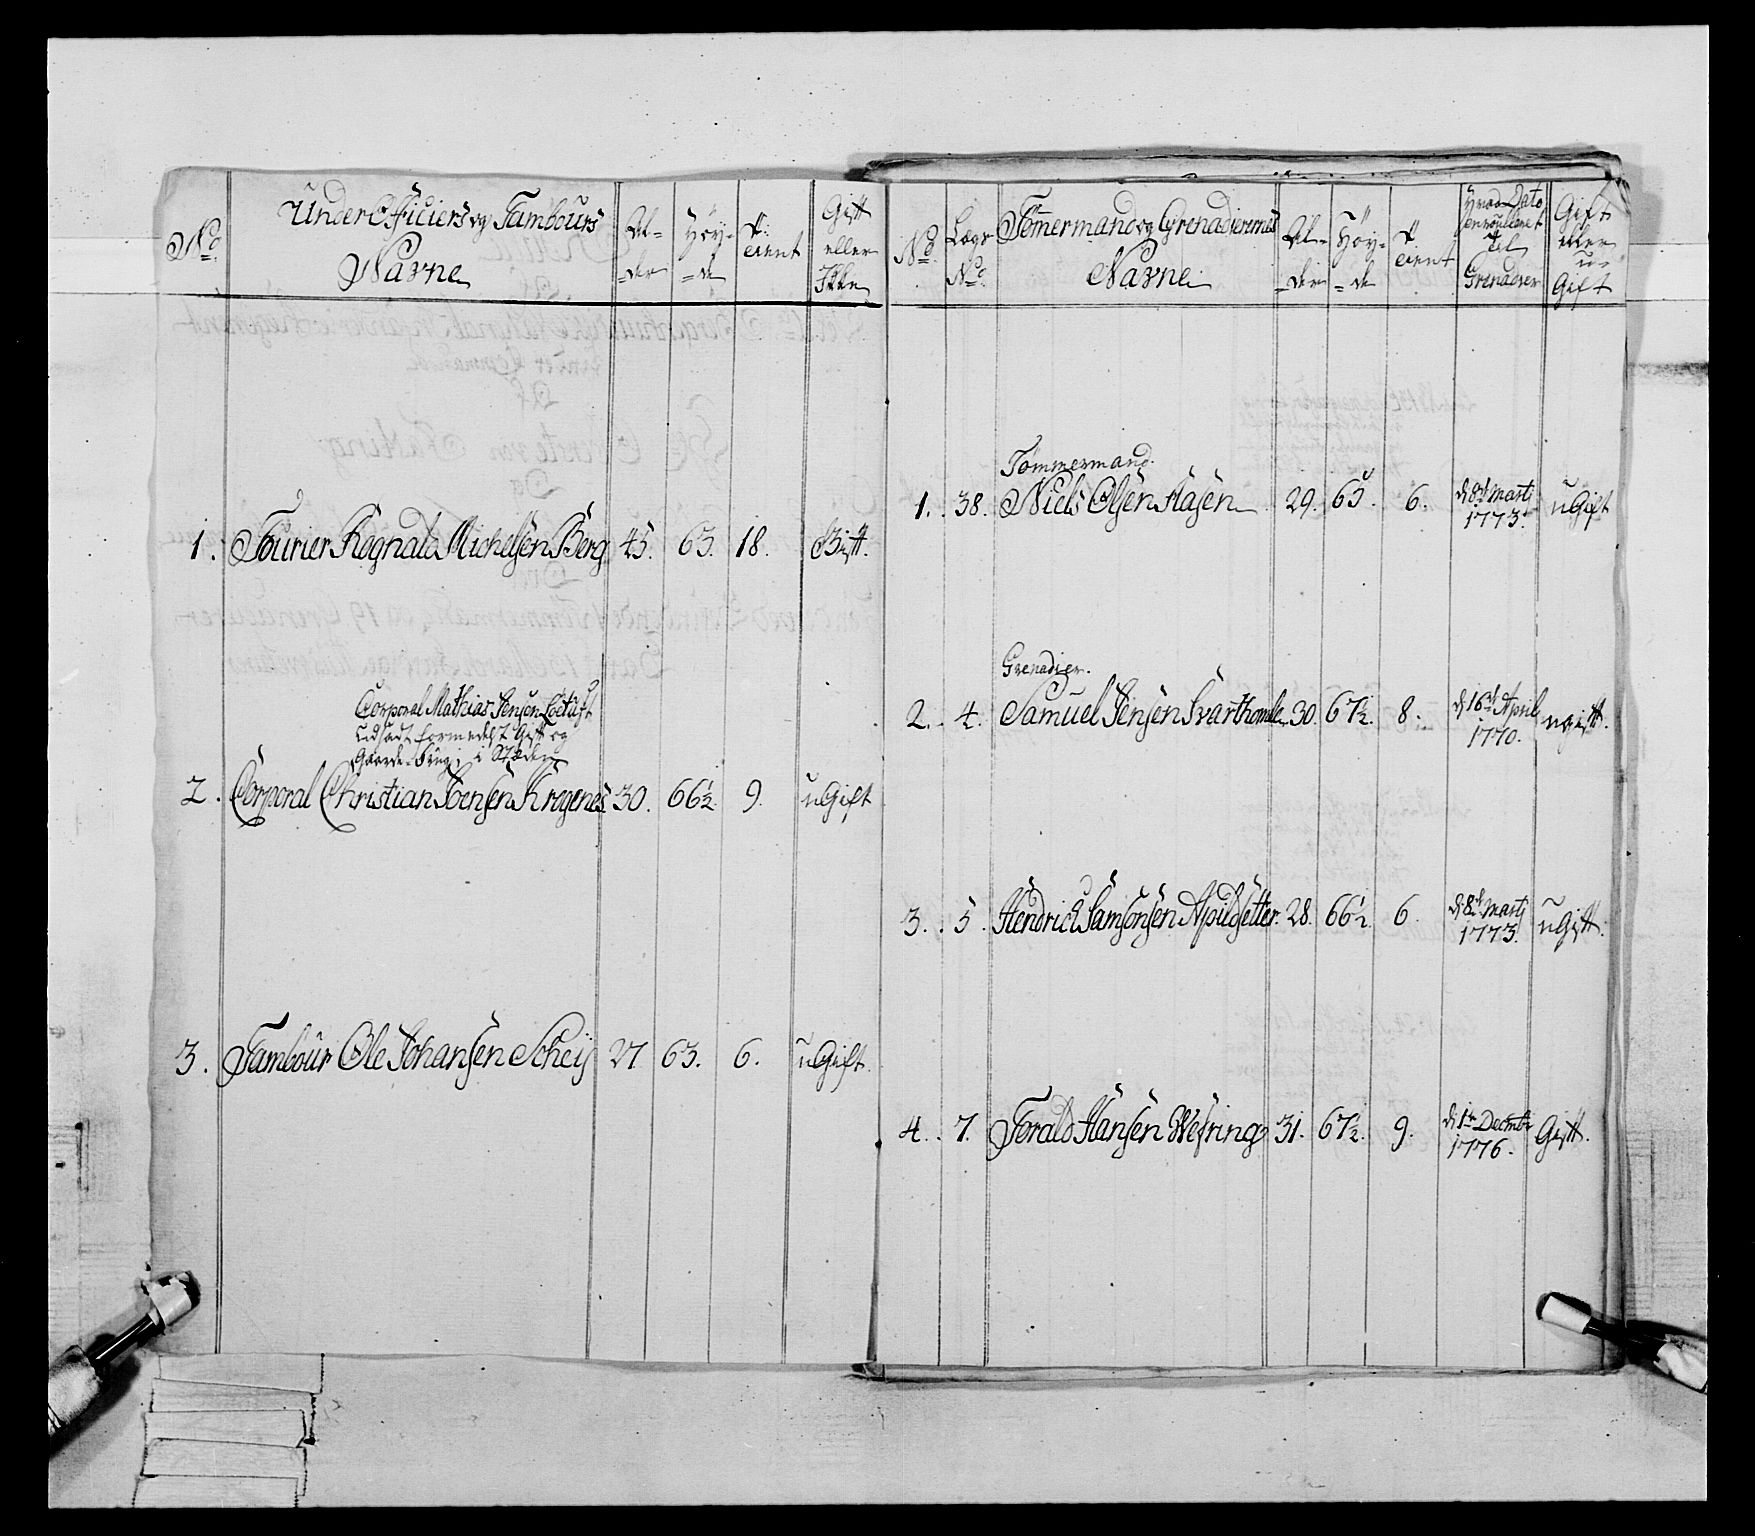 No. UnderOfficiers og Tambours Navne Al-der Höy-de Tient Gift eller Ikke
1. Fourier Regnald Michelsen Berg 45. 63. 18. Gift.
Corporal Mathias Jensen
Udsadt formedelst Gift og
Gaarde-Brug i Stæden
2. Corporal Christian Jensen Kragenes 30. 66½ 9. uGift
3. Tambour Ole Johansen Scheij 27 63. 6. uGift.
No. Lægs No. Tömmermand og Grenaderernes Navne Al-der Höy-de Tient Hvad Dato enroulleret til Grenaderer Gift eller u-Gift
Tömmermand.
1. 38. Niels Olsen Aasen 29. 65. 6. d 8de Martj 1773. uGift
Grenadier.
2. 4. Samuel Jensen Svarthomle 30. 67½. 8. d 16de April 1770. ugift.
3. 5. Hendrich Samsonsen Apildsetter. 28. 66½ 6. d 8de Martj 1773. uGift.
4. 7. Torald Hansen Wefring 31. 67½. 9. d 1te Decmbr 1776. Gift.